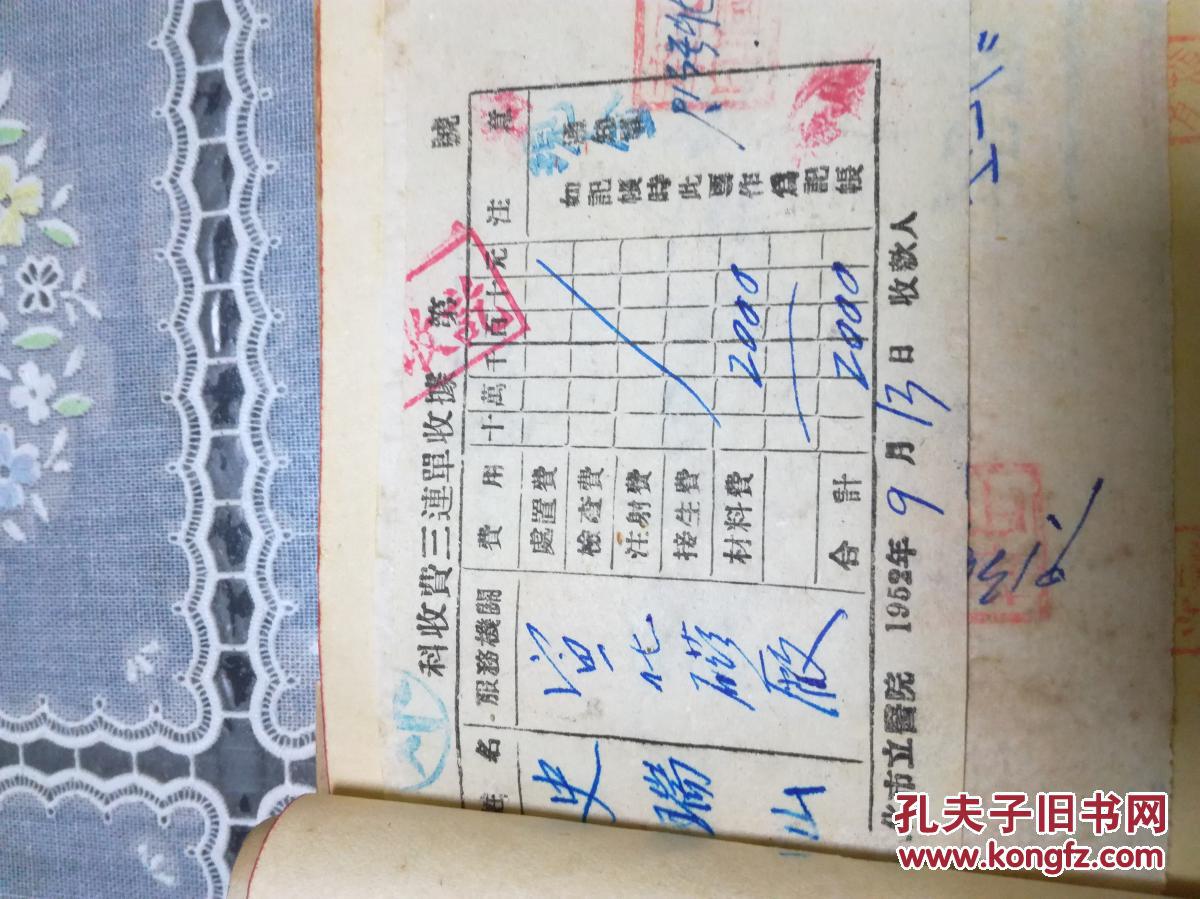 科收費三連單收據 第 號
姓名 服務機關 費用 十萬千百十元 注意
史瑞山
宣化磁廠
處置費
檢查費
注射費
接生費
材料費 2000
合計 2000
如記帳時此票作爲記帳
通知單
市立醫院 1952年9月13日 收款人
孔夫子旧书网
www.kongfz.com